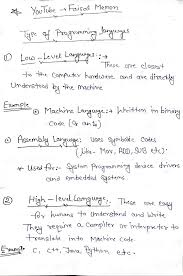 * YouTube → Faisal Memon
Type of Programming Languages
① Low-Level Languages :-→
These are closest
to the computer hardware and are directly
Understand by the machine
Example
• Machine Language :→ Written in binary
Code (0 an 1)
• Assembly Language: uses Symbolic Codes
(like- Mov, ADD, SUB etc).
* Used for:- System Programming device drivers
and embedded Systems.
② High-level Languages, :→ These are easy
for humans to Understand and Write
They require a Compiler or interpreter to
translate into Machine Code.
Example C, C++, Java, Python etc.